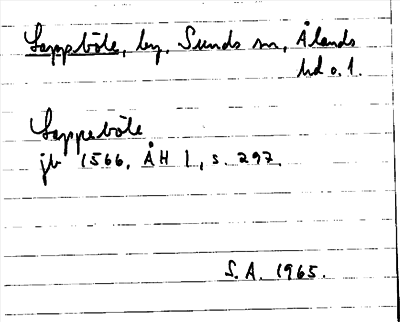 Seppböle, by, Sunds sn, Ålands
hd o. l.
Seppeböle
jb 1566, ÅH 1, s. 297
S.A. 1965.